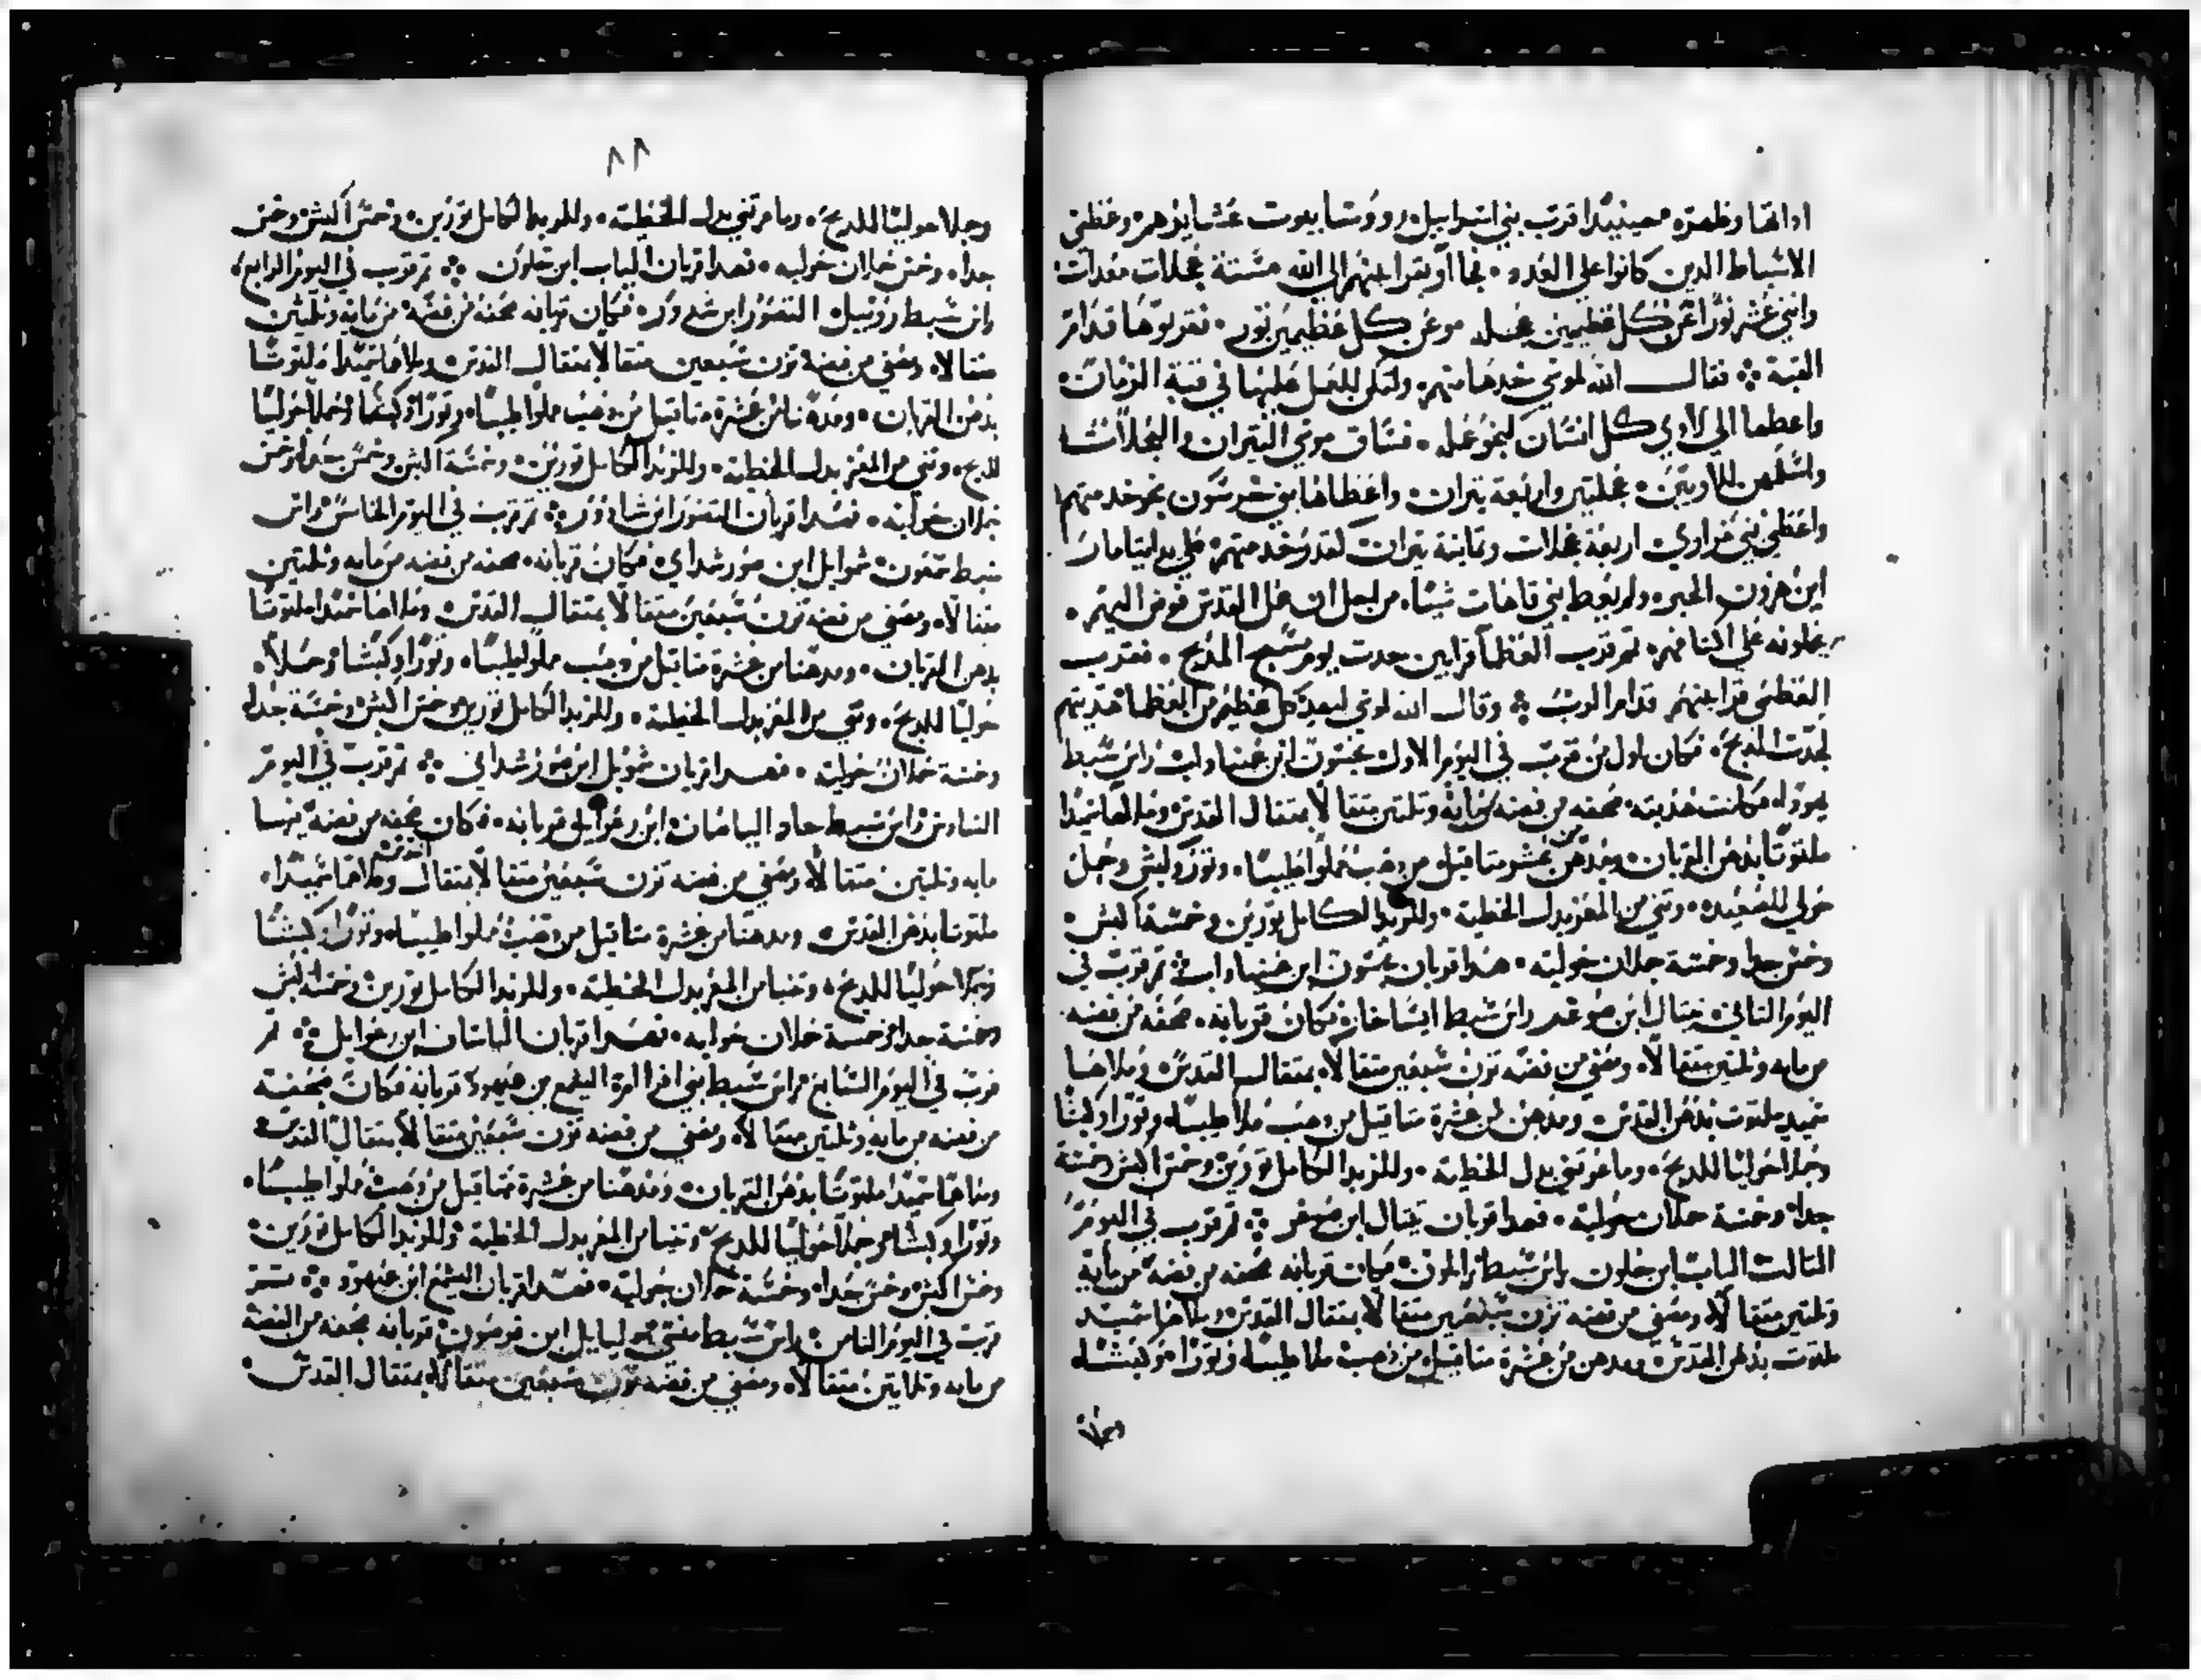 اداتها وطهره حينيدا قرب بني اسراييل رووسا بيوت عشايرهم وعظمى
الاسباط الدين كانوا على العدد فجااو بقرابينهم الى الله ستة عجلات مغدات
واثني عشر ثورا عن كل عظيمين عجله وعن كل عظيمين ثور فقربوها قدام
القبة فقال الله لموسى خدها منهم ولتكن للعمل عليها في قبة الزمان
واعطها الي لاوي كل انسان كنحو عمله فساق موسى التيران والعجلات
وسلمهن للاويين عجلتين واربعة تيران واعطاها بني جرسون نحو خدمتهم
واعطى بني مراري اربعة عجلات وتمانية تيران كقدر خدمتهم على يد ايتامار
ابن هرون الحبر ولم يعط بني قاهات شيا من اجل ان عمل القدس فوض اليهم
يحملونه على اكتافهم ثم قرب العظما قرابين حدت يوم مسح المدبح فقرب
العظمى قرابينهم قدام الرب وقال الله لموسى ليهد كل عظيم من العظما هديتهم
لحدت المدبح فكان اول من قرب في اليوم الاول نحشون ابن عميناداب راس سبط
يهودا فكانت هديته صحفه من فضه مايه وتلتين متقالا بمتقال القدس وملاها تميدا
ملتوتا بدهن القربان ومدهن من عشر متاقيل من دهب مملوا طيبا وثور وكبش وحمل
حولي للصعيده وتني من المعز بدل الخطية وللزبد الكامل ثورين وخمسة اكبش
وخمس جدا وخمسة حملان حوليه هدا قربان نحشون ابن عميناداب ثم قرب في
اليوم الثاني نتنال ابن صوغر راس سبط ايساخار فكان قربانه صحفه من فضه
من مايه وتلتين متقالا ومغني من فضه تزن سبعين متقالا بمتقال القدس وملاها
تميد ملتوت بدهن القدس ومدهن من عشرة متاقيل من دهب ملا طيبا وثورا وكبشا
وحملا حوليا للدبح وماعزتني بدل الخطيه وللزبد الكامل ثورين وخمس اكبش وخمسة
جدا وخمسة حملان حولية فهدا قربان نتنال ابن صوغر ثم قرب في اليوم
الثالث الياب ابن حلون راس سبط زابلون فكان قربانه صحفه من فضة من مايه
وتلتين متقالا ومغني من فضه تزن سبعين متقالا بمتقال القدس وملاها تميد
ملتوت بدهن القدس ومدهن من عشرة متاقيل من دهب ملا طيبا وثورا وكبشا
وحملا
٨٨
وحملا حوليا للدبح وماعزتني بدل الخطيه وللزبد الكامل ثورين وخمس اكبش وخمس
جدا وخمس حملان حوليه فهدا قربان الياب ابن حلون ثم قرب في اليوم الرابع
راس سبط روبيل اليصور ابن شدور فكان قربانه صحفه من فضه من مايه وتلتين
متقالا ومغني من فضة تزن سبعين متقالا بمتقال القدس وملاها تميدا ملتوتا
بدهن القربان ومدهنا من عشرة متاقيل من دهب مملوا طيبا وثورا وكبشا وحملا حوليا
للدبح وتني من المعز بدل الخطية وللزبد الكامل ثورين وخمسة اكبش وخمس جدا وخمس
حملان حوليه فهدا قربان اليصور ابن شادور ثم قرب في اليوم الخامس راس
سبط شمعون شموايل ابن صور شداي فكان قربانه صحفه من فضه من مايه وتلتين
متقالا ومغني من فضه تزن سبعين متقالا بمتقال القدس وملاها تميدا ملتوتا
بدهن القربان ومدهنا من عشرة متاقيل من دهب مملوا طيبا وثورا وكبشا وحملا
حوليا للدبح وتني من المعز بدل الخطية وللزبد الكامل ثورين وخمس اكبش وخمسة جدا
وخمسة حملان حولية فهدا قربان شمويل ابن صور شداي ثم قرب في اليوم
السادس راس سبط جاد الياسان ابن رعوايل قربانه فكان صحفه من فضة فيها
مايه وتلتين متقالا ومغني من فضه تزن سبعين متقالا بمتقال القدس وملاها تميدا
ملتوتا بدهن القدس ومدهنا من عشرة متاقيل من دهب مملوا طيبا وثورا وكبشا
وحملا حوليا للدبح وتنيا من المعز بدل الخطية وللزبد الكامل ثورين وخمسة اكبش
وخمسة جدا وخمسة حملان حوليه فهدا قربان الياسان ابن رعوايل ثم
قرب في اليوم السابع راس سبط بني افرام اليشمع بن عيهود قربانه فكان صحفة
من فضه من مايه وتلتين متقالا ومغني من فضه تزن سبعين متقالا بمتقال القدس
وملاها تميدا ملتوتا بدهن القربان ومدهنا من عشرة متاقيل من دهب مملوا طيبا
وثورا وكبشا وحملا حوليا للدبح وتنيا من المعز بدل الخطية وللزبد الكامل ثورين
وخمس اكبش وخمس جدا وخمسة حملان حولية فهدا قربان اليشمع ابن عيهود ثم
قرب في اليوم الثامن راس سبط منسى ابن قربانه صحفه من الفضه
من مايه وتلاتين متقالا ومغني من فضه تزن سبعين متقالا بمتقال القدس